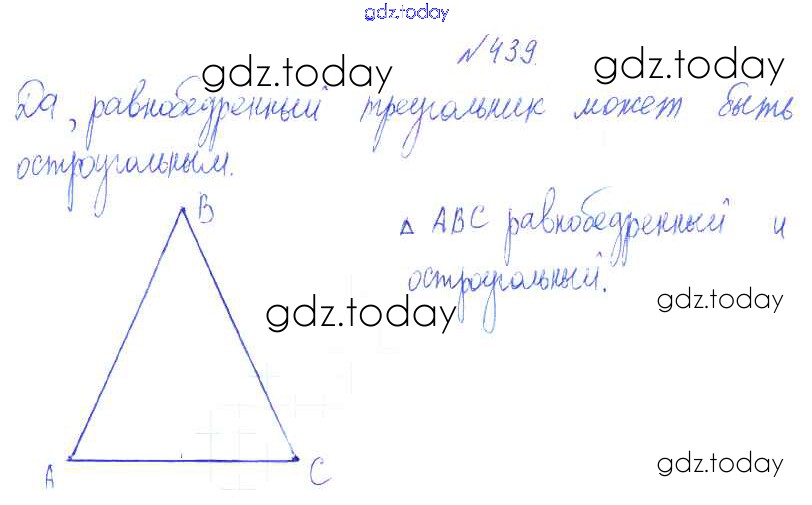 gdz.today
№439.
gdz.today gdz.today
Да, равнобедренный треугольник может быть
остроугольным.
B
△ ABC равнобедренный и
остроугольный.
gdz.today gdz.today
A C
gdz.today